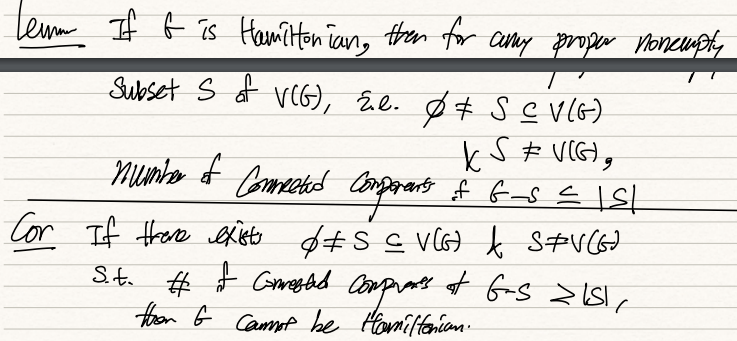 Lemma If G is Hamiltonian, then for any proper nonempty
Subset S of V(G), i.e. ∅ ≠ S ⊆ V(G)
& S ≠ V(G),
number of Connected Components of G-S ≤ |S|
Cor If there exists ∅ ≠ S ⊆ V(G) & S ≠ V(G)
s.t. # of Connected Components of G-S ≥ |S|,
then G cannot be Hamiltonian.